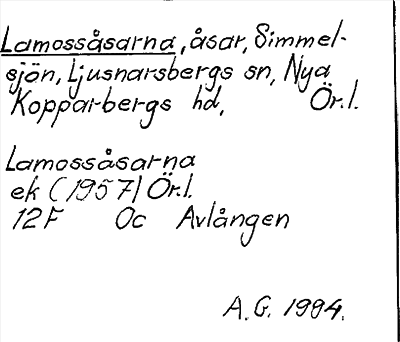 Lamossåsarna, åsar, Simmel-
sjön, Ljusnarsbergs sn, Nya
Kopparbergs hd, Ör.l.
Lamossåsarna
ek (1957) Ör.l.
12F 0c Avlången
A.G. 1994.